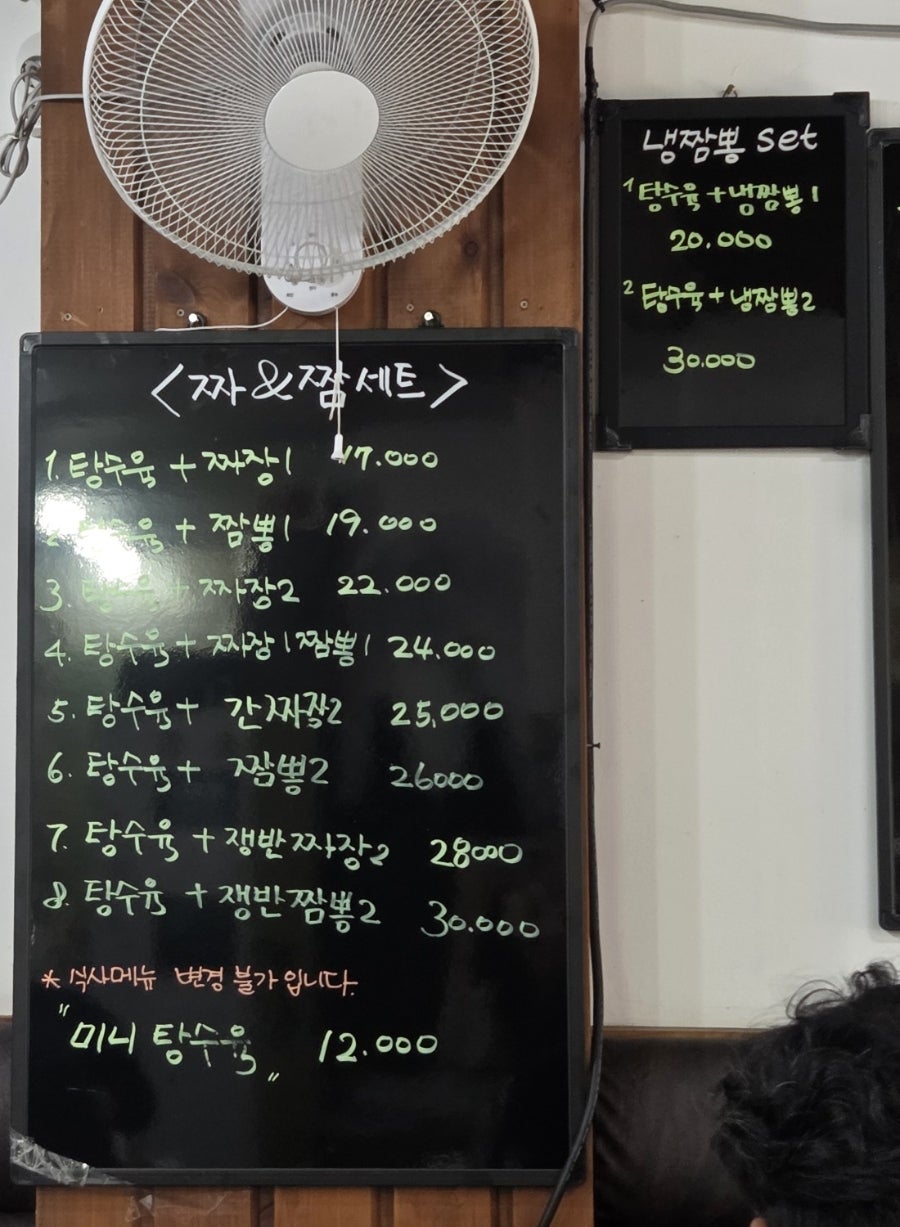 <짜&짬세트>
1. 탕수육 + 짜장1 17.000
2. 탕수육 + 짬뽕1 19.000
3. 탕수육 + 짜장2 22.000
4. 탕수육 + 짜장1짬뽕1 24.000
5. 탕수육 + 간짜장2 25,000
6. 탕수육 + 짬뽕2 26000
7. 탕수육 + 쟁반짜장2 28000
8. 탕수육 + 쟁반짬뽕2 30.000
* 식사메뉴 변경 불가 입니다.
"미니 탕수육" 12.000
냉짬뽕 set
1 탕수육 + 냉짬뽕1
20.000
2 탕수육 + 냉짬뽕2
30.000